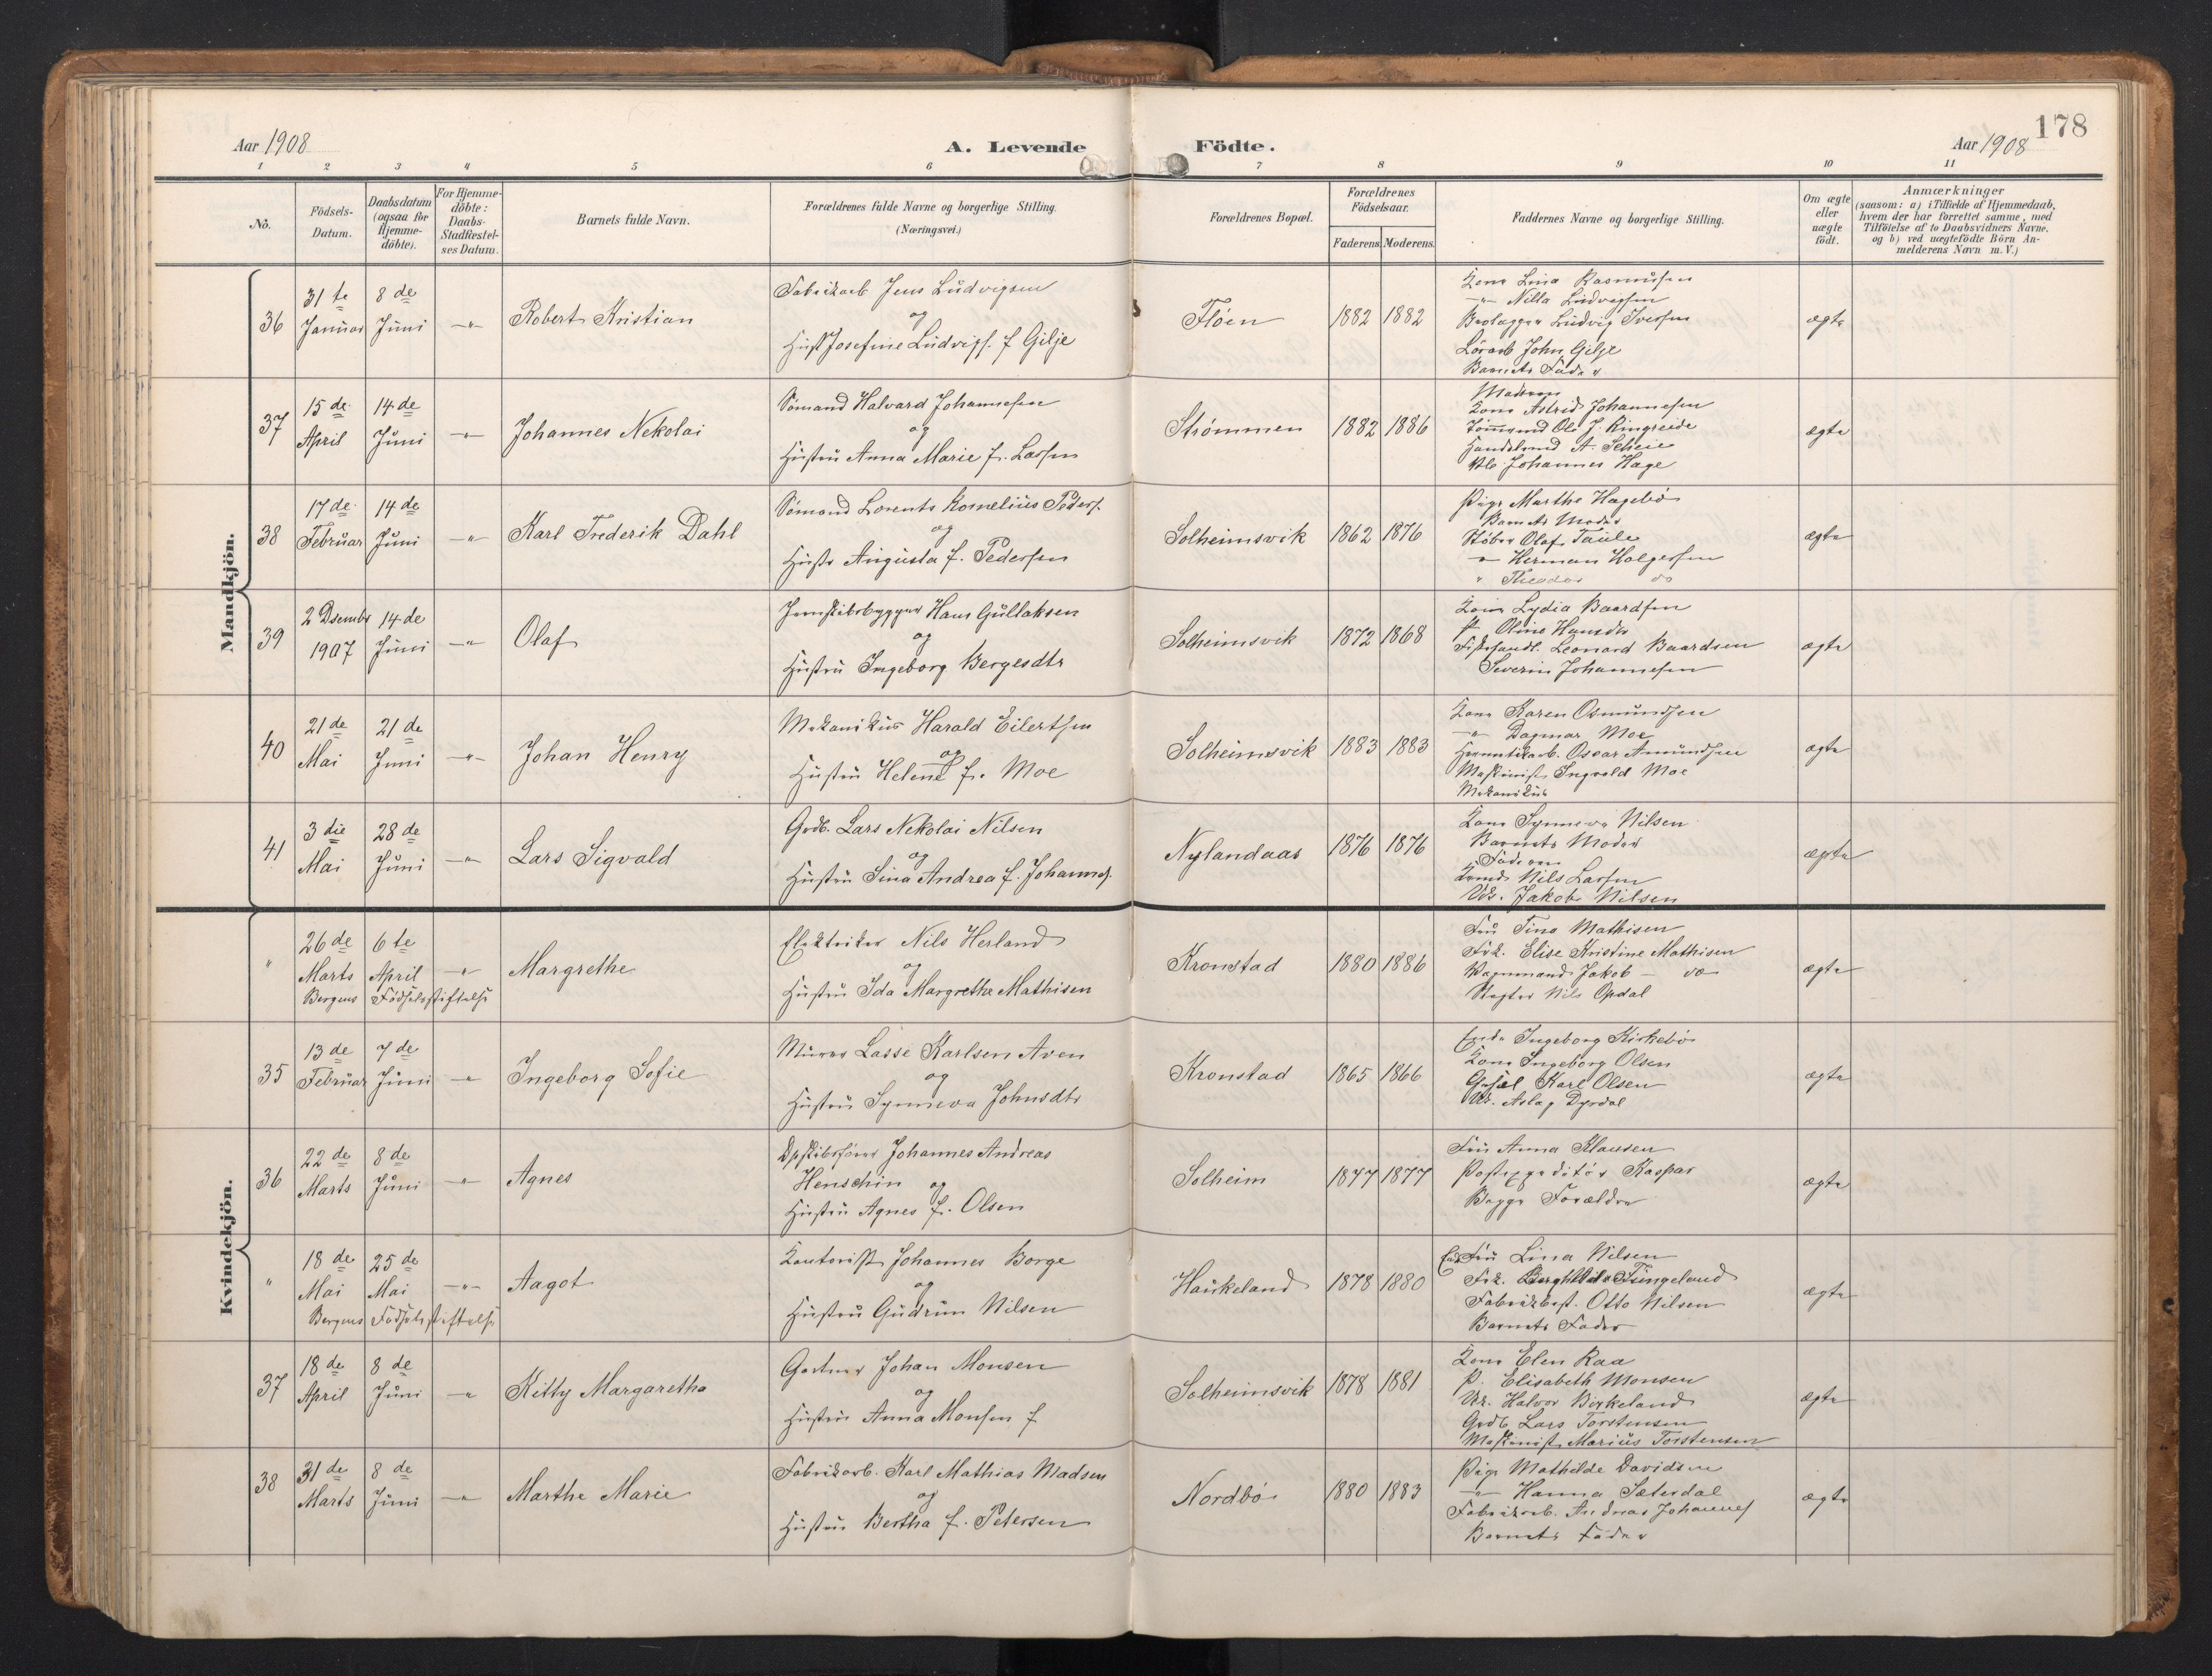 178
Aar 1908
A. Levende Födte.
Aar 1908
1 2 3 4 5 6 7 8 9 10 11
No.
Födsels-Datum.
Daabsdatum (ogsaa for Hjemme-döbte).
For Hjemme-döbte: Daabs-Stadfestel-ses Datum.
Barnets fulde Navn.
Forældrenes fulde Navne og borgerlige Stilling.
(Næringsvei.)
Forældrenes Bopæl.
Forældrenes Födselsaar.
Faderens Moderens
Faddernes Navne og borgerlige Stilling.
Om ægte eller uægte födt.
Anmærkninger
(saasom: a) i Tilfælde af Hjemmedaab, hvem der har forrettet samme, med Tilföielse af to Daabsvidners Navne, og b) ved uægtefödte Börn An-melderens Navn m. V.)
Mandkjön.
36 31te Januar 8de Juni -"- Robert Kristian
Fabrikarb Jens Ludvigsen
og
Hust Josefine Ludvigs. f Gilje
Fløen 1882 1882
Kone Lina Rasmussen
-"- Nilla Ludvigsen
Ludvig Iversen
John Gilje
Barnets Fader
ægte
37 15de April 14de Juni -"- Johannes Nekolai
Sømand Halvard Johannesen
og
Hustru Anna Marie f. Larsen
Strømmen 1882 1886
Moderen
Kone Astrid Johannesen
Tømmermd Ole J. Ringreide
Handelsmd A. Scheie
Johannes Hage
ægte
38 17de Februar 14de Juni -"- Karl Frederik Dahl
Sømand Lorents Kornelius Peders.
og
Hustr Augusta f. Pedersen
Solheimsvik 1862 1876
Pige Marthe Hagebö
Barnets Moder
Støber Olaf Taule
-"- Herman Holgersen
" Theodor do
ægte
39 2 Dsembr 1907 14de Juni -"- Olaf
Jernskibsbygger Hans Gullaksen
og
Hustru Ingeborg Bergesdtr
Solheimsvik 1872 1868
Kone Lydia Baardsen
P. Oline Hansdtr
Fiskehandl. Leonard Baardsen
Severin Johannesen
ægte
40 21de Mai 21de Juni -"- Johan Henry
Mekanikus Harald Eilertsen
og
Hustru Helene f. Moe
Solheimsvik 1883 1883
Kone Karen Osmundsen
-"- Dagmar Moe
Hermetikarb. Oscar Amundsen
Maskinist Ingvald Moe
Mekanikus
ægte
41 3die Mai 28de Juni -"- Lars Sigvald
Grdb. Lars Nekolai Nilsen
og
Hustru Sina Andrea f. Johannes.
Nylandaas 1876 1876
Kone Synneva Nilsen
Barnets Moder
Faderen
Nils Larsen
Uk. Jakob Nilsen
ægte
Kvindekjön.
" 26de Marts 6te April -"- Margrethe
Bergens Födselsstiftelse
Elektriker Nils Herland
og
Hustru Ida Margrethe Mathisen
Kronstad 1880 1886
Fru Tina Mathisen
Frk. Elise Kristine Mathisen
Vognmand Jakob - do
Slagter Nils Opdal
ægte
35 13de Februar 7de Juni -"- Ingeborg Sofie
Murer Lasse Karlsen Aven
og
Hustru Synneva Johnsdtr
Kronstad 1865 1866
Enke Ingeborg Kirkebö
Kone Ingeborg Olsen
Gesæl Karl Olsen
Uk. Aslag Dyrdal
ægte
36 22de Marts 8de Juni -"- Agnes
Dpskibsfører Johannes Andreas
Henschin og
Hustru Agnes f. Olsen
Solheim 1847 1877
Fru Anna Klausen
Postexpeditör Kaspar
Begge Forældre
ægte
" 18de Mai 25de Mai -"- Aagot
Bergens Födselsstiftelse
Kontorist Johannes Borge
og
Hustru Gudrun Nilsen
Haukeland 1878 1880
Enkefru Lina Nilsen
Frk. Berghilde Tungeland
Fabrikbest. Otto Nilsen
Barnets Fader
ægte
37 18de April 8de Juni -"- Kitty Margaretha
Gartner Johan Monsen
og
Hustru Anna Monsen f
Solheimsvik 1878 1881
Kone Elen Raa
P. Elisabeth Monsen
Uk. Halvor Birkeland
Grdb Lars Torstensen
Maskinist Marius Torstensen
ægte
38 31de Marts 8de Juni -"- Marthe Marie
Fabrikarb. Karl Mathias Madsen
og
Hustru Bertha f. Petersen
Nordbö 1880 1883
Pige Mathilde Davidsen
-"- Hanna Sæterdal
Fabrikarb. Andreas Johannes
Barnets Fader
ægte